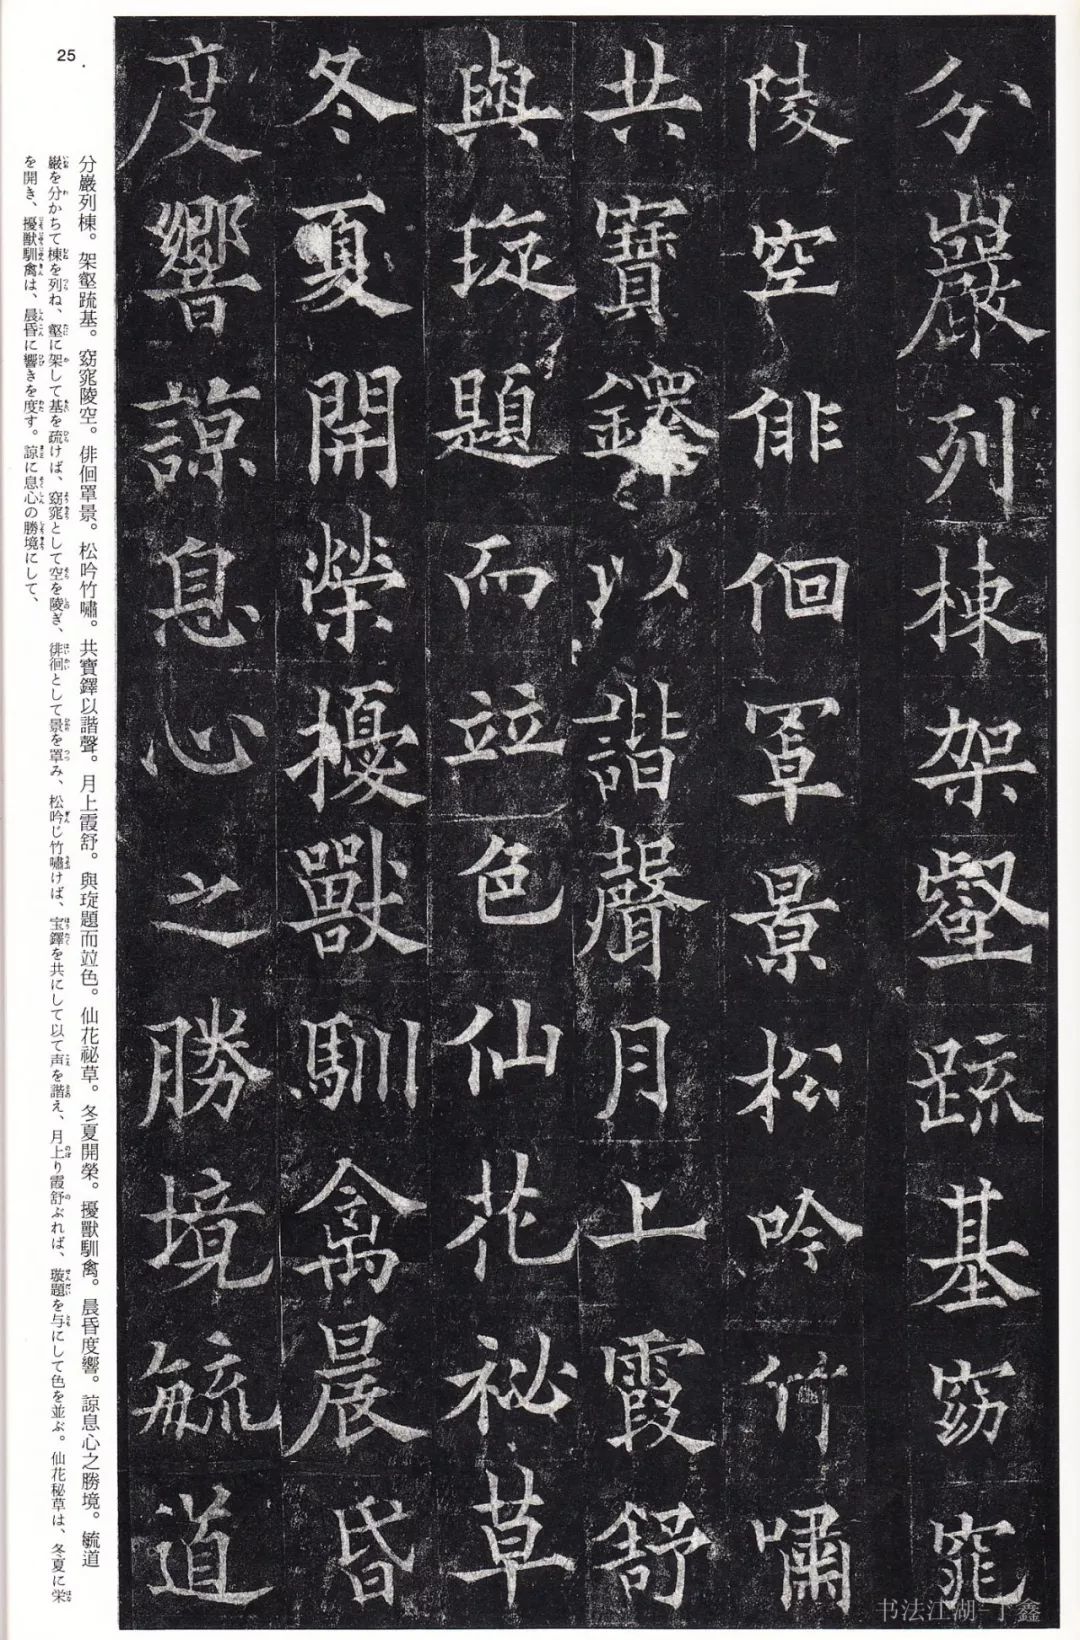 分巖列棟架壑䟽基窈窕
陵空俳佪罩景松吟竹嘯
共寶鐸以諧聲月上霞舒
與琁題而竝色仙花祕草
冬夏開榮擾獸馴禽晨昏
度響諒息心之勝境毓道
25
分巖列棟。架壑䟽基。窈窕陵空。俳佪罩景。松吟竹嘯。共寶鐸以諧聲。月上霞舒。與琁題而竝色。仙花祕草。冬夏開榮。擾獸馴禽。晨昏度響。諒息心之勝境。毓道
巌を分かちて棟を列ね、壑に架して基を疏けば、窈窕として空を陵ぎ、徘徊として景を罩み、松吟じ竹嘯けば、宝鐸を共にして以て声を諧え、月上り霞舒ぶれば、璇題を与にして色を並ぶ。仙花秘草は、冬夏に栄
を開き、擾獣馴禽は、晨昏に響きを度す。諒に息心の勝境にして、
书法江湖-丁鑫